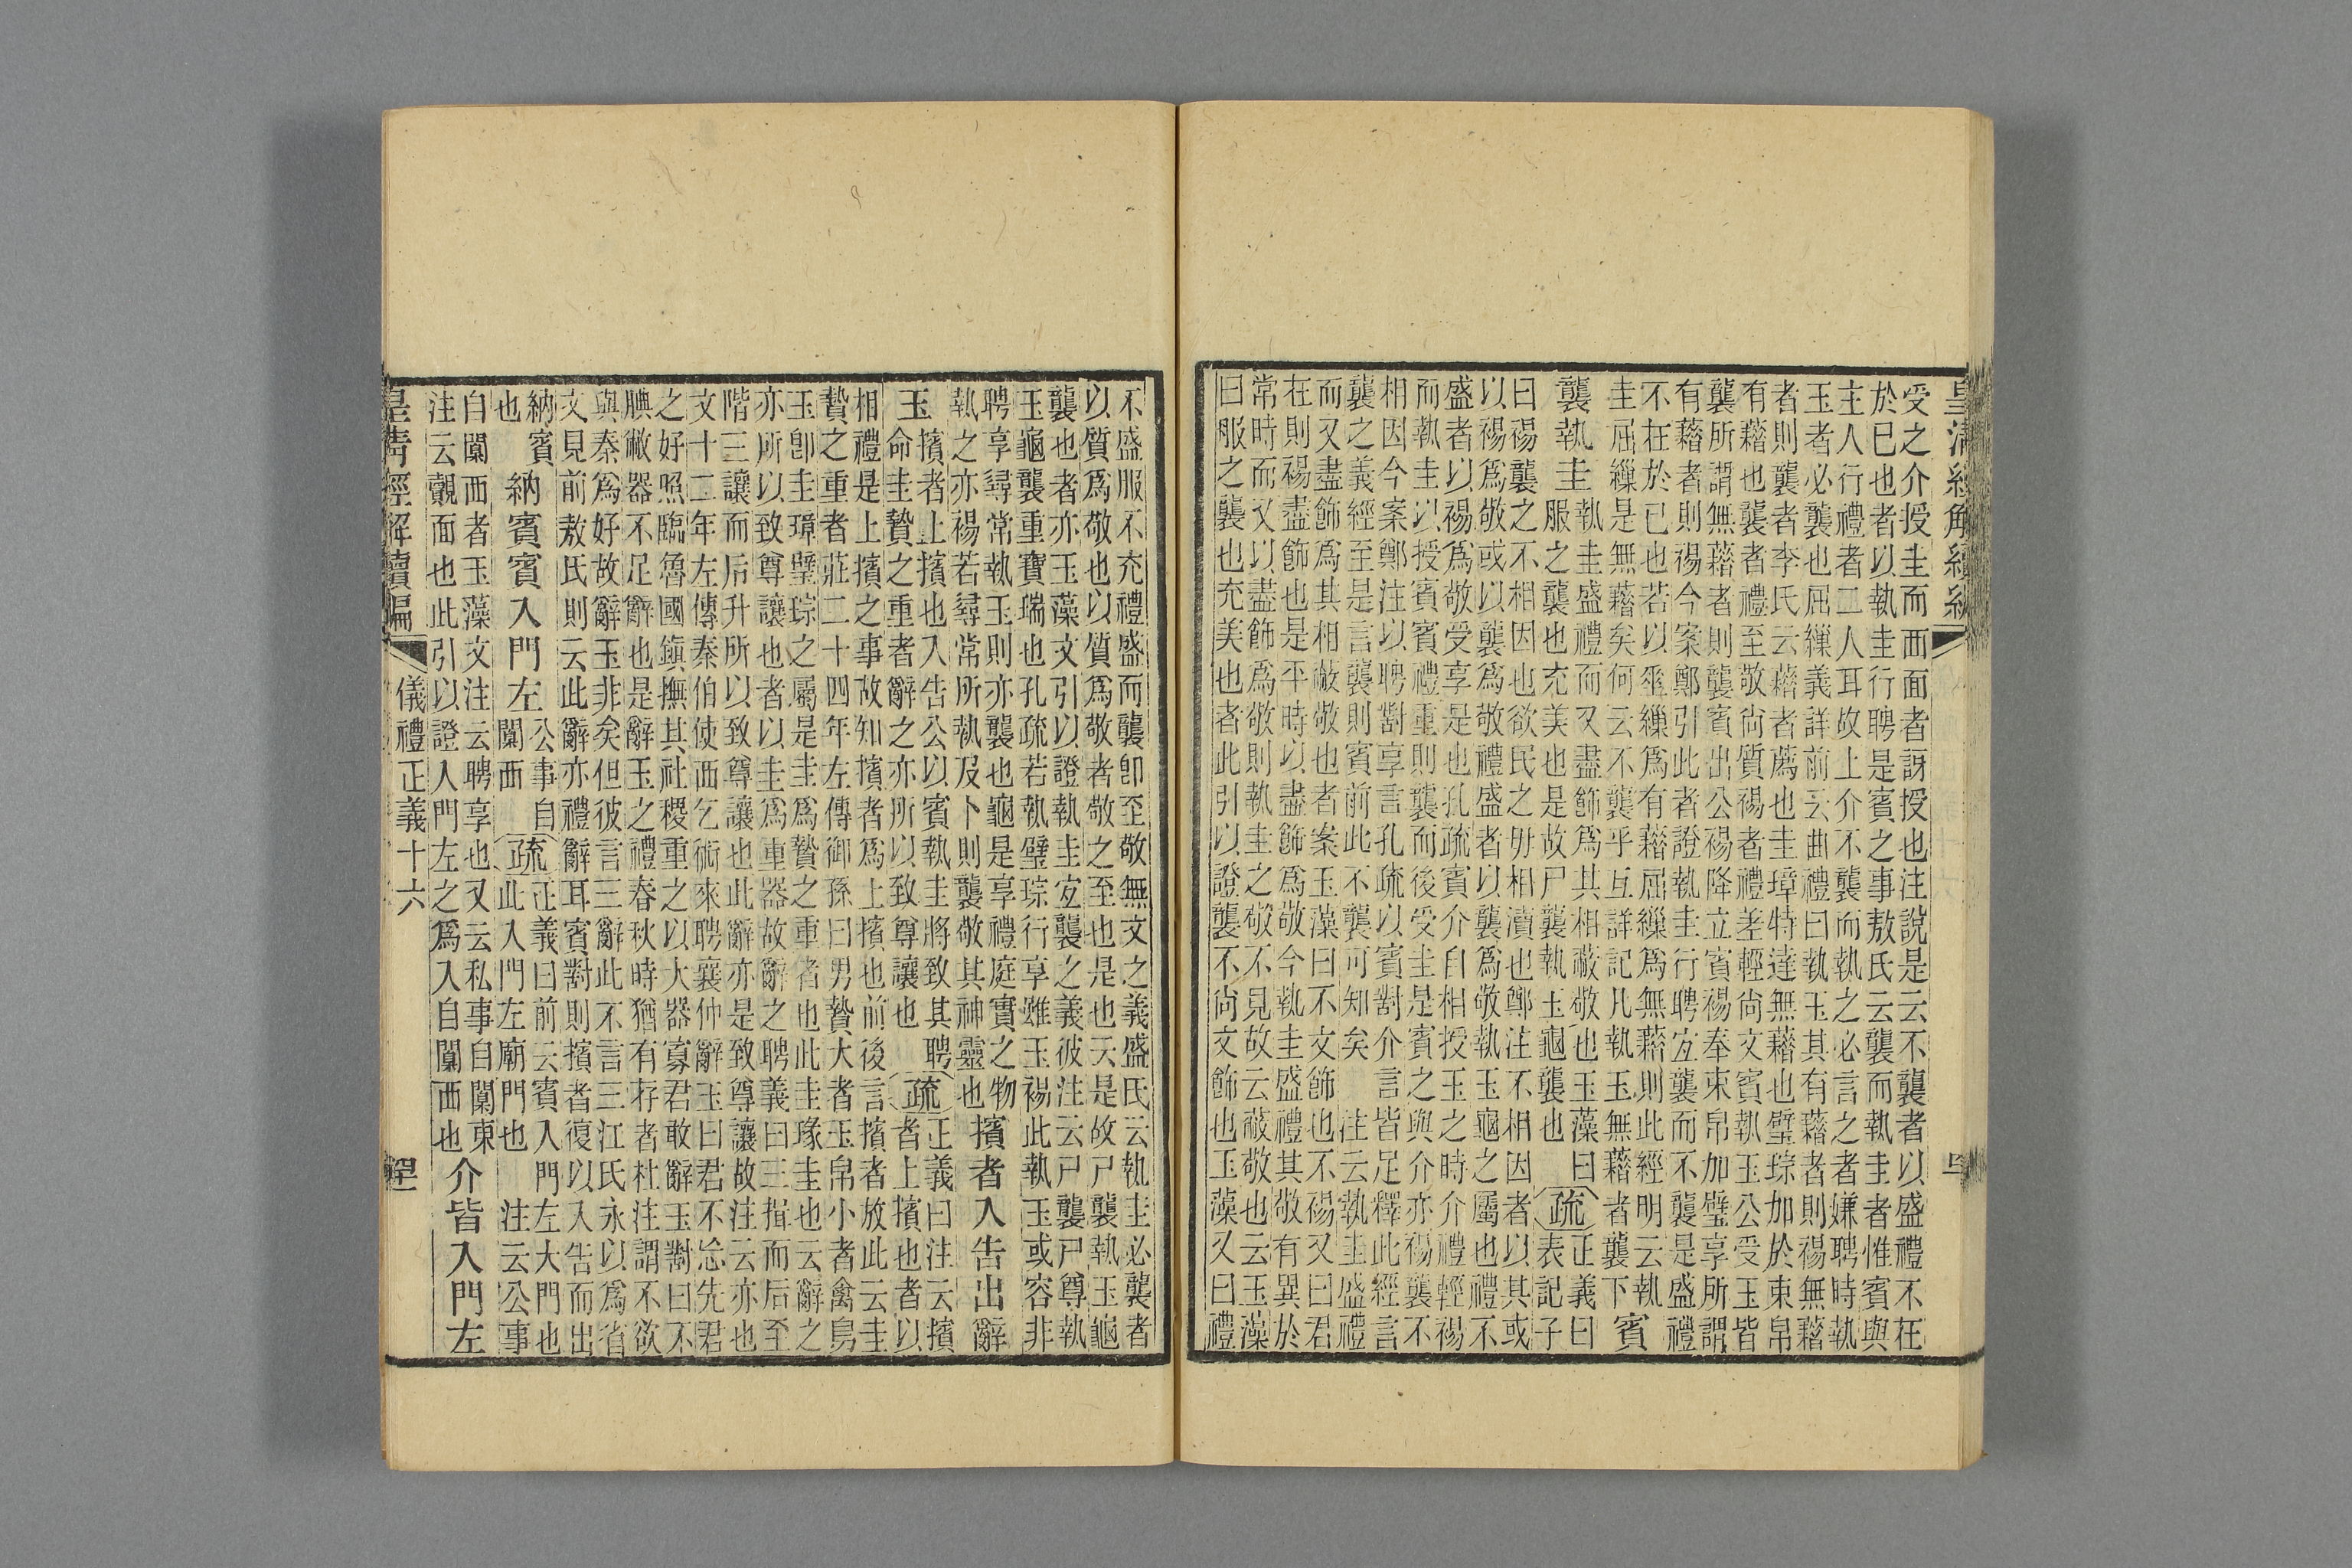 皇清經解續編
受之介授圭而面面者訝授也注說是云不襲者以盛禮不在
於已也者以執圭行聘是賓之事敖氏云襲而執圭者惟賓與
主人行禮者二人耳故上介不襲而執之必言之者嫌聘時執
玉者必襲也屈繅義詳前云曲禮曰執玉其有藉者則裼無藉
者則襲者李氏云藉者薦也圭璋特達無藉也璧琮加於束帛
有藉也襲者禮至敬尚質裼者禮差輕尚文賓執玉公受玉皆
襲所謂無藉者則襲賓出公裼降立賓裼奉束帛加璧享所謂
有藉者則裼今案鄭引此者證執圭行聘宜襲而不襲是盛禮
不在於已也若以垂繅爲有藉屈繅爲無藉則此經明云執
圭屈繅是無藉矣何云不襲乎互詳記凡執玉無藉者襲下
賓
襲執圭
執圭盛禮而又盡飾爲其相蔽敬也玉藻曰
服之襲也充美也是故尸襲執玉龜襲也
疏
正義曰
表記子
曰裼襲之不相因也欲民之毋相瀆也鄭注不相因者以其或
以裼爲敬或以襲爲敬禮盛者以襲爲敬執玉龜之屬也禮不
盛者以裼爲敬受享是也孔疏賓介自相授玉之時介禮輕裼
而執圭以授賓賓禮重則襲而後受圭是賓之與介亦裼襲不
相因今案鄭注以聘對享言孔疏以賓對介言皆足釋此經言
襲之義經至是言襲則賓前此不襲可知矣注云執圭盛禮
而又盡飾爲其相蔽敬也者案玉藻曰不文飾也不裼又曰君
在則裼盡飾也是平時以盡飾爲敬今執圭盛禮其敬有異於
常時而又以盡飾爲敬則執圭之敬不見故云蔽敬也云玉藻
曰服之襲也充美也者此引以證襲不尚文飾也玉藻又曰禮
不盛服不充禮盛而襲卽至敬無文之義盛氏云執圭必襲者
以質爲敬也以質爲敬者敬之至也是也云是故尸襲執玉龜
襲也者亦玉藻文引以證執圭宜襲之義彼注云尸襲尸尊執
玉龜襲重寶瑞也孔疏若執璧琮行享雖玉裼此執玉或容非
聘享尋常執玉則亦襲也龜是享禮庭實之物
執之亦裼若尋常所執及卜則襲敬其神靈也
擯者入告出辭
玉
擯者上擯也入告公以賓執圭將致其聘
命圭贄之重者辭之亦所以致尊讓也
疏
正義曰注云擯
者上擯也者以
相禮是上擯之事故知擯者爲上擯也前後言擯者放此云圭
贄之重者莊二十四年左傳御孫曰男贄大者玉帛小者禽鳥
玉卽圭璋璧琮之屬是圭爲贄之重者也此圭瑑圭也云辭之
亦所以致尊讓也者以圭爲重器故辭之聘義曰三揖而后至
階三讓而后升所以致尊讓也此辭亦是致尊讓故注云亦也
文十二年左傳秦伯使西乞術來聘襄仲辭玉曰君不忘先君
之好照臨魯國鎮撫其社稷重之以大器寡君敢辭玉對曰不
腆敝器不足辭也是辭玉之禮春秋時猶有存者杜注謂不欲
與秦爲好故辭玉非矣但彼言三辭此不言三江氏永以爲省
文見前敖氏則云此辭亦禮辭耳賓對則擯者復以入告而出
納賓
也
納賓賓入門左
公事自
闑西
疏
正義曰前云賓入門左大門也
此入門左廟門也注云公事
自闑西者玉藻文注云聘享也又云私事自闑東
注云覿面也此引以證入門左之爲入自闑西也
介皆入門左
皇清經解續編
儀禮正義十六